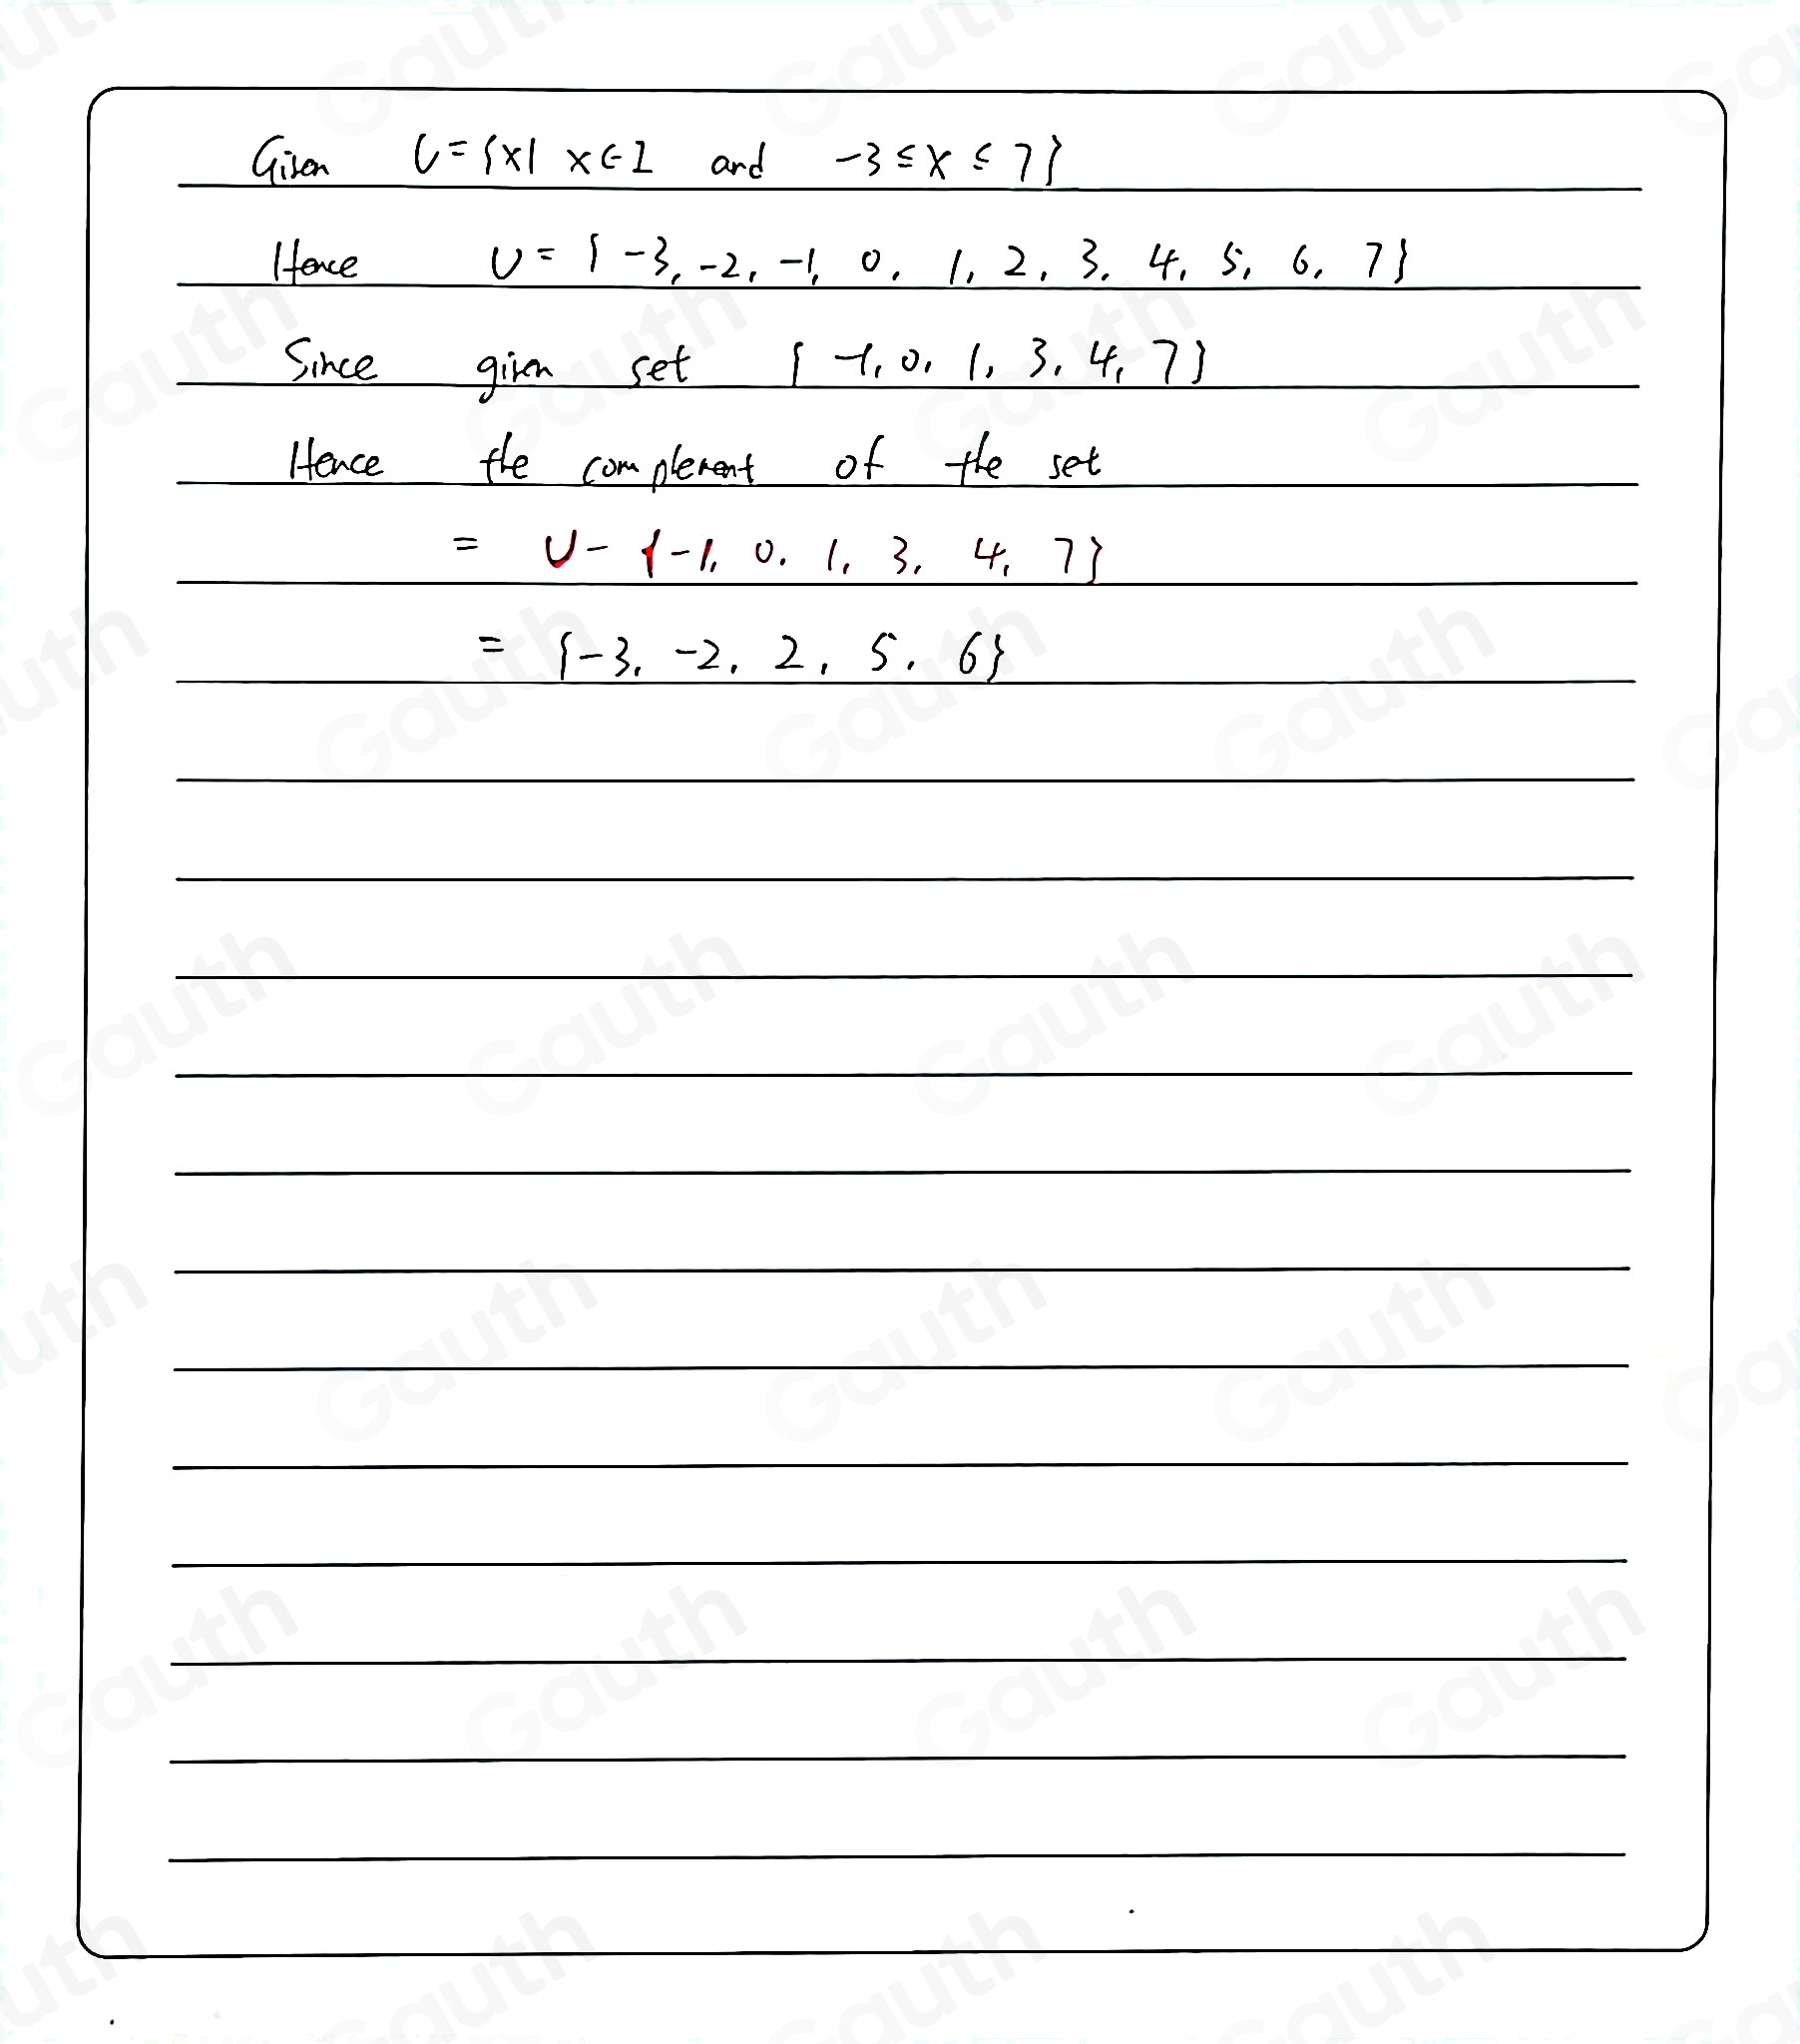 Given U={x| x∈Z and -3≤x≤7}
Hence U={-3, -2, -1, 0, 1, 2, 3, 4, 5, 6, 7}
Since given set {-1, 0, 1, 3, 4, 7}
Hence the complement of the set
= U-{-1, 0, 1, 3, 4, 7}
= {-3, -2, 2, 5, 6}